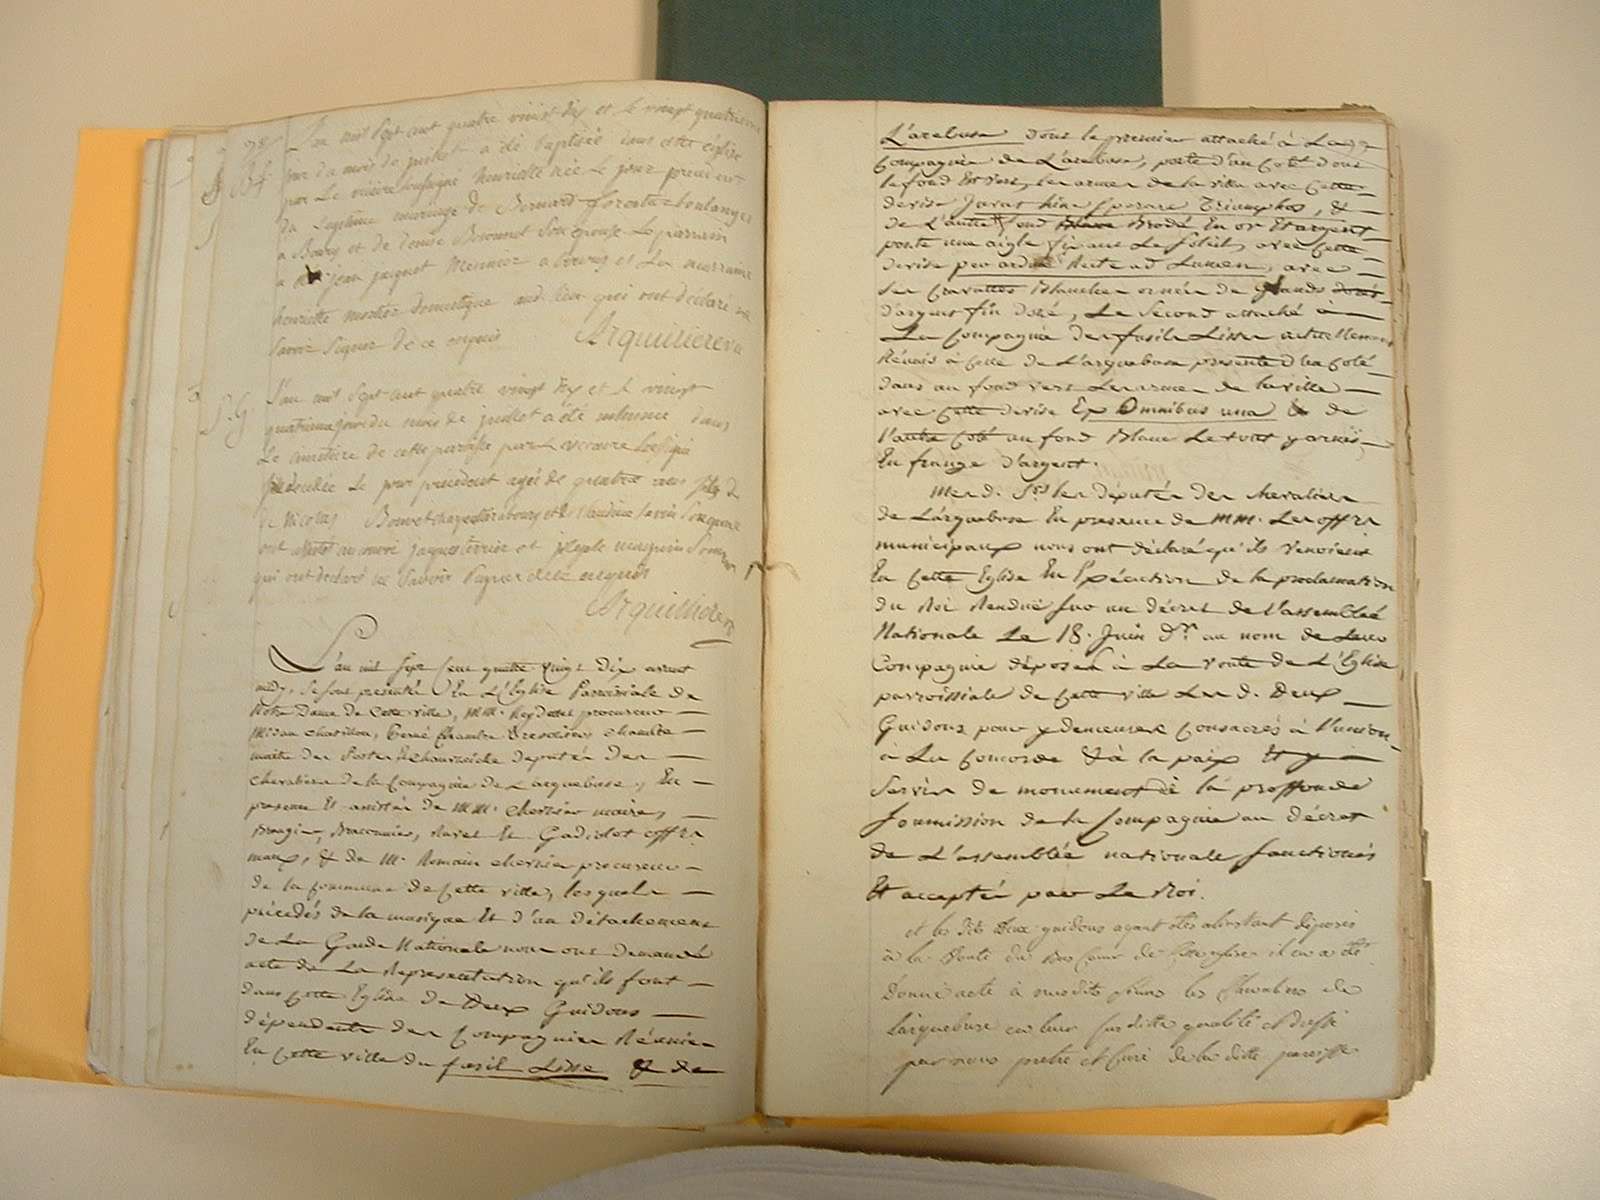 L'an mil sept cent quatre vingt dix et le vingt quatrieme
jour du mois de juillet a été baptisée dans cette église
par Le vicaire soussigné henriette née Le jour précédent
du Legitime mariage de Bernard boulanger
a Bourg et de denise son epouse Le parrain
a été jean jaque a Bourg et La marraine
henriette domestique aud. lieu qui ont déclaré ne
savoir signer de ce enquis Arquilliere vic
3
S. G.
L'an mil sept cent quatre vingt dix et le vingt
quatrieme jour du mois de juillet a été inhumé dans
Le cimetiere de cette paroisse par Le vicaire soussigné
decedé Le jour précédent agé de quatre ans fils de
de Nicolas Bouvet et de Claudine son epouse
ont assisté au convoi jaques terrier et joseph
qui ont declaré ne Savoir signer de ce enquis
Arquilliere vic
L'an mil sept cent quatre vingt dix avant
midy, se sont presentés En L'Eglise Parroissiale de
Notre Dame de Cette ville, MM. Reydellet procureur
Midan chatillon, chambre
maitre des Postes députés des
chevaliers de la Compagnie de L'arquebuse, En
presence Et assistés de MM. chevrier maire,
Brangier, Braconnier, Ravet et Gadiolot offrs
maux, & de M. Romain chevrier procureur
de la commune de Cette ville, lesquels
précédés de la musique Et d'un détachement
de La Garde Nationale nous ont demandé
acte de La Representation qu'ils font
dans Cette Eglise de Deux Guidons
dépendants des Compagnies Réunies
En Cette ville du fusil Lisse & de
L'arcbuse dont le premier attaché à La
Compagnie de L'arcbuse, porte d'un Coté dont
le fond Est vert, les armes de la ville avec Cette
devise Juvat hinc sperare Triumphos, &
de L'autre fond Brodé En or Et argent
porte une aigle fixant Le Soleil, avec Cette
devise pro ardua Recte ad Lumen, avec
Ses Cravattes Blanches ornées de Glands dorés
d'argent fin doré, Le Second attaché à
La Compagnie des fusils Lisses actuellement
Réunis à Celle de L'arquebuse presente d'un Coté
dans un fond vert Les armes de la ville
avec Cette devise Ex Omnibus una & de
l'autre Coté un fond Blanc Le tout garni
En frange d'argent.
Mesd. Srs les députés des chevaliers
de L'arquebuse En presence de MM. Les offrs
municipaux nous ont déclaré qu'ils venoient
En Cette Eglise En Exécution de la proclamation
du Roi Rendue sur un décret de l'assemblée
Nationale Le 18. Juin dr au nom de Leur
Compagnie déposer à La voute de L'Eglise
parroissiale de Cette ville Lesd. Deux
Guidons pour y demeurer Consacrés à l'union
à La Concorde & à la paix Et y
Servir de monument de la proffonde
Soumission de la Compagnie au décret
de L'assemblée nationale sanctionés
Et acceptés par Le Roi.
et les dits Deux guidons ayant étés alinstant déposés
à la Voute du Bas Coeur de Cette eglise il en a été
Donné acte à mesdits sieurs les Chevaliers de
l'arquebuse en leur susditte qualité et
par nous pretre et Curé de la ditte paroisse